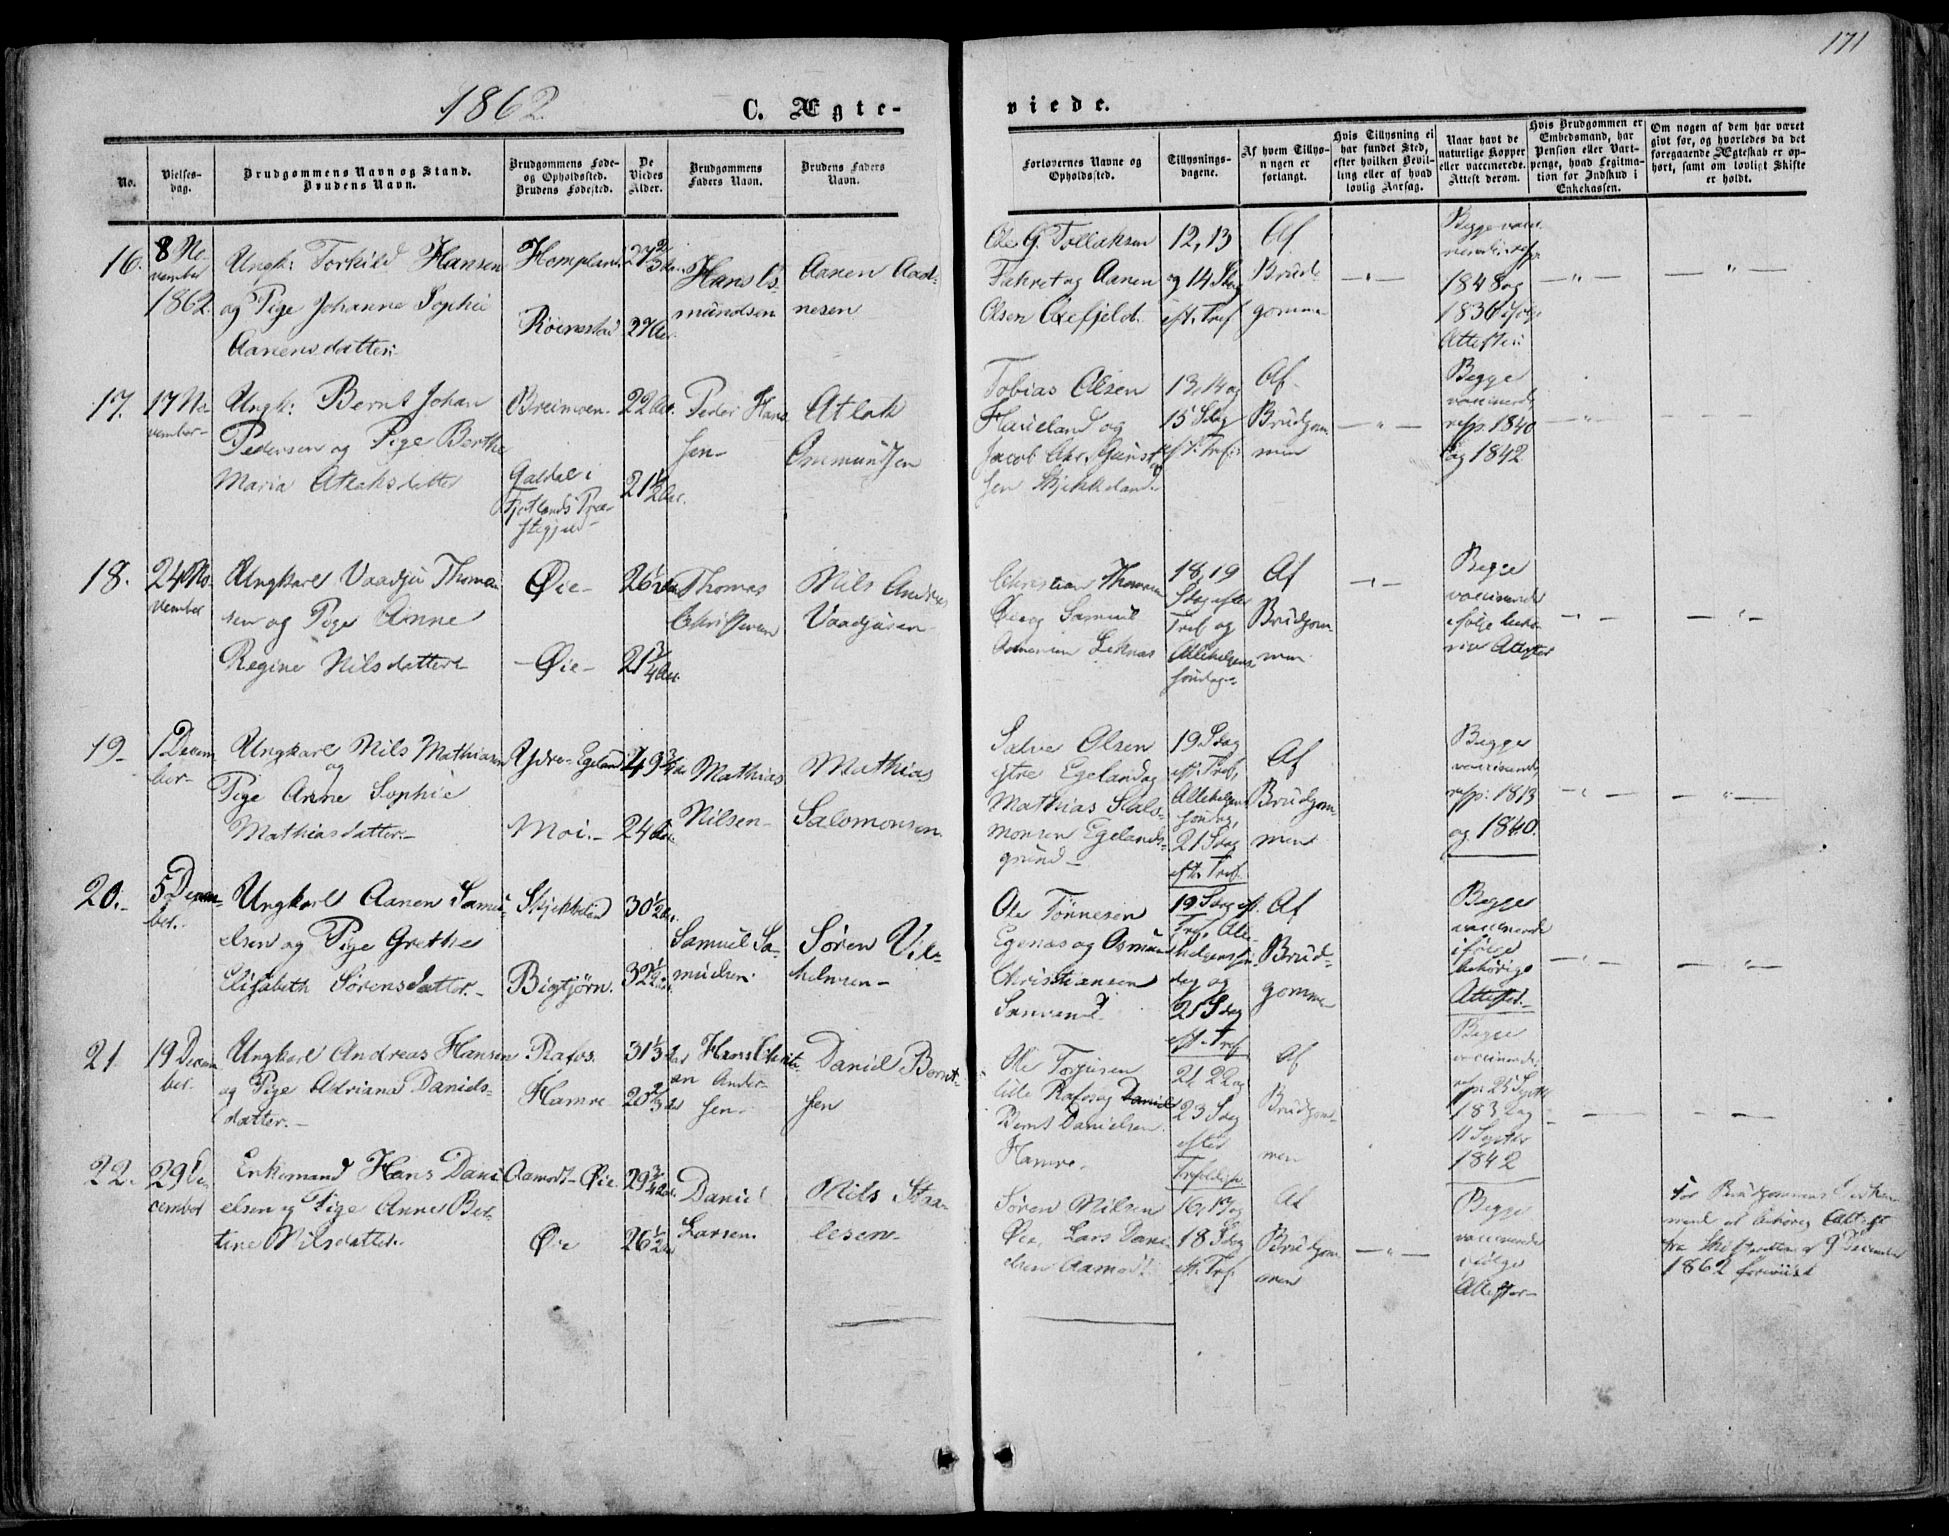 171
1862
C. Ægte-
viede.
No.
Vielses-
dag.
Brudgommens Navn og Stand.
Brudens Navn.
Brudgommens Føde-
og Opholdssted.
Brudens Fødested.
De
Viedes
Alder.
Brudgommens
Faders Navn.
Brudens Faders
Navn.
Forlovernes Navne og
Opholdssted.
Tillysnings-
dagene.
Af hvem Tillys-
ningen er
forlangt.
Hvis Tillysning ei
har fundet Sted,
efter hvilken Bevil-
ling eller af hvad
lovlig Aarsag.
Naar havt de
naturlige Kopper
eller vaccinerede.
Attest derom.
Hvis Brudgommen er
Embedsmand, har
Pension eller Vart-
penge, hvad Legitima-
tion for Indskud i
Enkekassen.
Om nogen af dem har været
givt før, og hvorledes da det
foregaaende Ægteskab er op-
hørt, samt om lovligt Skifte
er holdt.
16.
8 No-
vember
1862.
Ungk: Torkild Hansen
og Pige Johanne Sophie
Aanensdatter
Hompland
Røienstad
27 2/3
27 Aar
Hans Os-
mundsen
Aanen Aad-
nesen
Ole G. Tollaksen
og Aanen
Olsen
12, 13
og 14 Sdag
eft. Tref
Af
Brud-
gomme
1848 og
1836
Attester
17.
17 No-
vember
Ungk: Bernt Johan
Pedersen og Pige Berthe
Maria Atlaksdatter
Breimoen
Galdal i
Fjotlands Præ-
stegjeld
22 Aar.
21 1/2 Aar.
Peder Han-
sen
Atlak
Ommundsen
Tobias Olsen
Haueland og
Jacob Chr.
13, 14 og
15 Sdag
eft. Tref.
Af
Brudgom-
men
Begge
vaccinerede
resp. 1840
og 1842
18.
24 No-
vember
Ungkarl Vaadju Thoma-
sen og Pige Anne
Regine Nilsdatter
Øie
Øie
26 1/2 Aar
21 3/4 Aar.
Thomas
Christensen
Nils Andreas
Vaadjusen
Christian Thomasen
Øie og Samuel
18, 19
Sdag efter
Tref og
Allehelgens
søndag
Af
Brudgom-
men
Begge
vaccinerede
ifølge behø-
rige Attester
19.
1 Decem-
ber
Ungkarl Nils Mathiasen
og
Pige Anne Sophie
Mathiasdatter
Ydre-Egeland
Moi.
49 3/4 Aar
24 Aar.
Mathias
Nilsen
Mathias
Salomonsen
Salve Olsen
ytre Egeland og
Mathias Salo-
monsen Egelands-
grund
19 Sdag
eft. Tref,
Allehelgens
søndag,
21 Sdag
eft. Tref.
Af
Brudgom-
men
Begge
vaccinerede
resp: 1813
og 1840.
20.
5 Decem-
ber.
Ungkarl Aanen Samu-
elsen og Pige Grethe
Elisabeth Sørensdatter.
Skjekkeland
Bigtjørn.
30 1/2 Aar.
32 1/2 Aar.
Samuel Sa-
muelsen
Søren Vil-
helmsen
Ole Tønnesen
Egenæs og Asmund
Christiansen
19 Sdag eft.
Tref, Alle-
helgens søn-
dag og
21 Sdag
eft. Tref
Af
Brud-
gomme
Begge
vaccinerede
ifølge
behørige
Attester.
21
19 Decem-
ber.
Ungkarl Andreas Hansen
og Pige Adriana Daniels-
datter.
Rafos
Hamre
31 1/3 Aar
20 2/3 Aar
Hans Christi-
an Ander-
sen
Daniel Bernt-
sen
Ole Torjusen
lille Rafos og Daniel
Bernt Danielsen
Hamre
21, 22 og
23 Sdag
efter
Trefoldigh.
Af
Brudgom-
men
Begge
vaccinerede
resp. 25 Septbr
1832 og
11 Septbr
1842
22.
29 De-
cember
Enkemand Hans Dani-
elsen og Pige Anne Ber-
tine Nilsdatter.
Aamodt-Øie
Øie
29 3/4 Aar
26 1/2 Aar
Daniel
Larsen
Nils Staa-
lesen
Søren Nilsen
Øie, Lars Dani-
elsen Aamodt
16, 17 og
18 Sdag
eft. Tref.
Af
Brudgom-
men
Begge
vaccinerede
ifølge
Attester
For Brudgommens Vedkom-
mende er behørig Attest
fra Skifteretten af 9 December
1862 foreviist